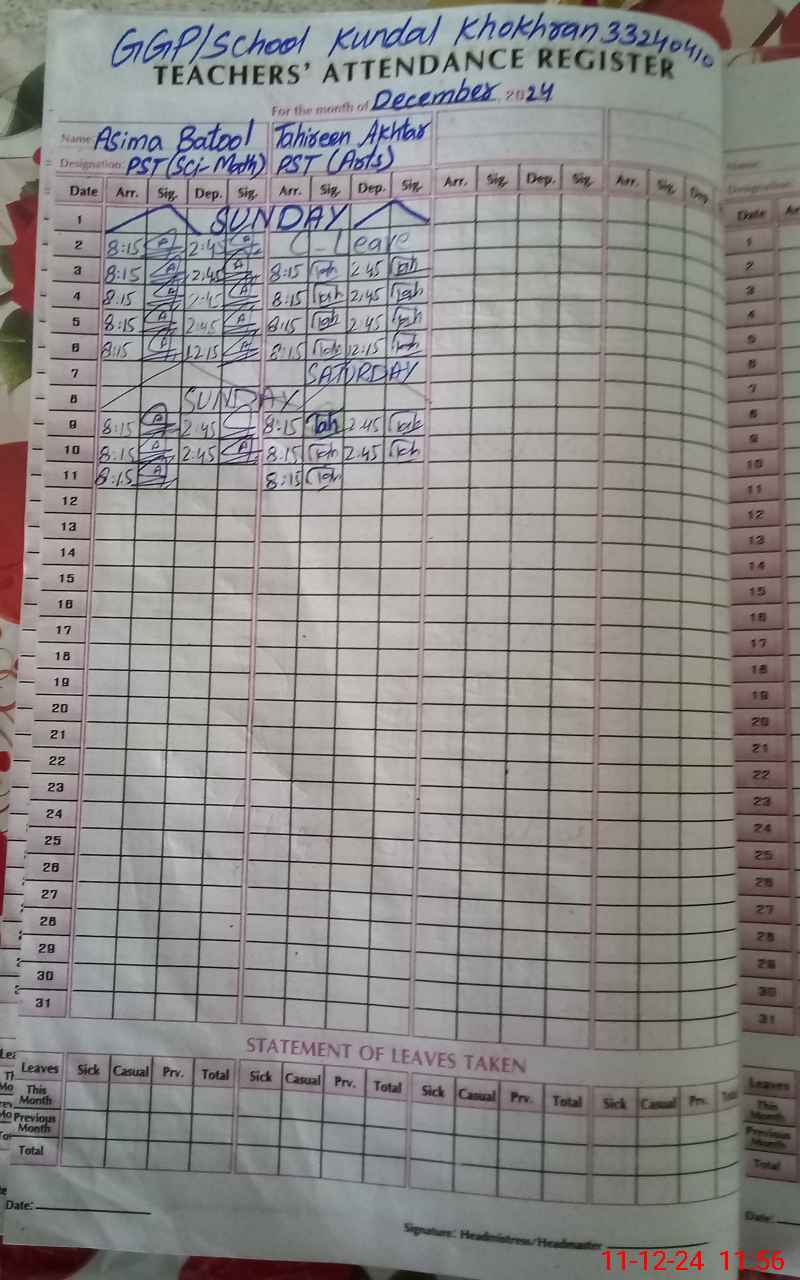 GGP/School Kundal Khokhran 33240410
TEACHERS' ATTENDANCE REGISTER
For the month of December 2024
Name: Asima Batool Tahireen Akhtar
Designation: PST (Sci-Math) PST (Arts)
Date Arr. Sig. Dep. Sig. Arr. Sig. Dep. Sig. Arr. Sig. Dep. Sig. Arr. Sig. Dep.
1 SUNDAY
2 8:15 A 2:45 A C-Leave
3 8:15 A 2:45 A 8:15 Tah 2:45 Tah
4 8:15 A 2:45 A 8:15 Tah 2:45 Tah
5 8:15 A 2:45 A 8:15 Tah 2:45 Tah
6 8:15 A 12:15 A 8:15 Tah 12:15 Tah
7 SATURDAY
8 SUNDAY
9 8:15 A 2:45 8:15 Tah 2:45 Tah
10 8:15 A 2:45 A 8:15 Tah 2:45 Tah
11 8:15 A 8:15 Tah
12
13
14
15
16
17
18
19
20
21
22
23
24
25
26
27
28
29
30
31
STATEMENT OF LEAVES TAKEN
Leaves Sick Casual Prv. Total Sick Casual Prv. Total Sick Casual Prv. Total Sick Casual Prv. Total
This Month
Previous Month
Total
Date:
Signature: Headmistress/Headmaster
Date
1
2
3
4
5
6
7
8
9
10
11
12
13
14
15
16
17
18
19
20
21
22
23
24
25
26
27
28
29
30
31
Leaves
This Month
Previous Month
Total
Date:
11-12-24 11:56